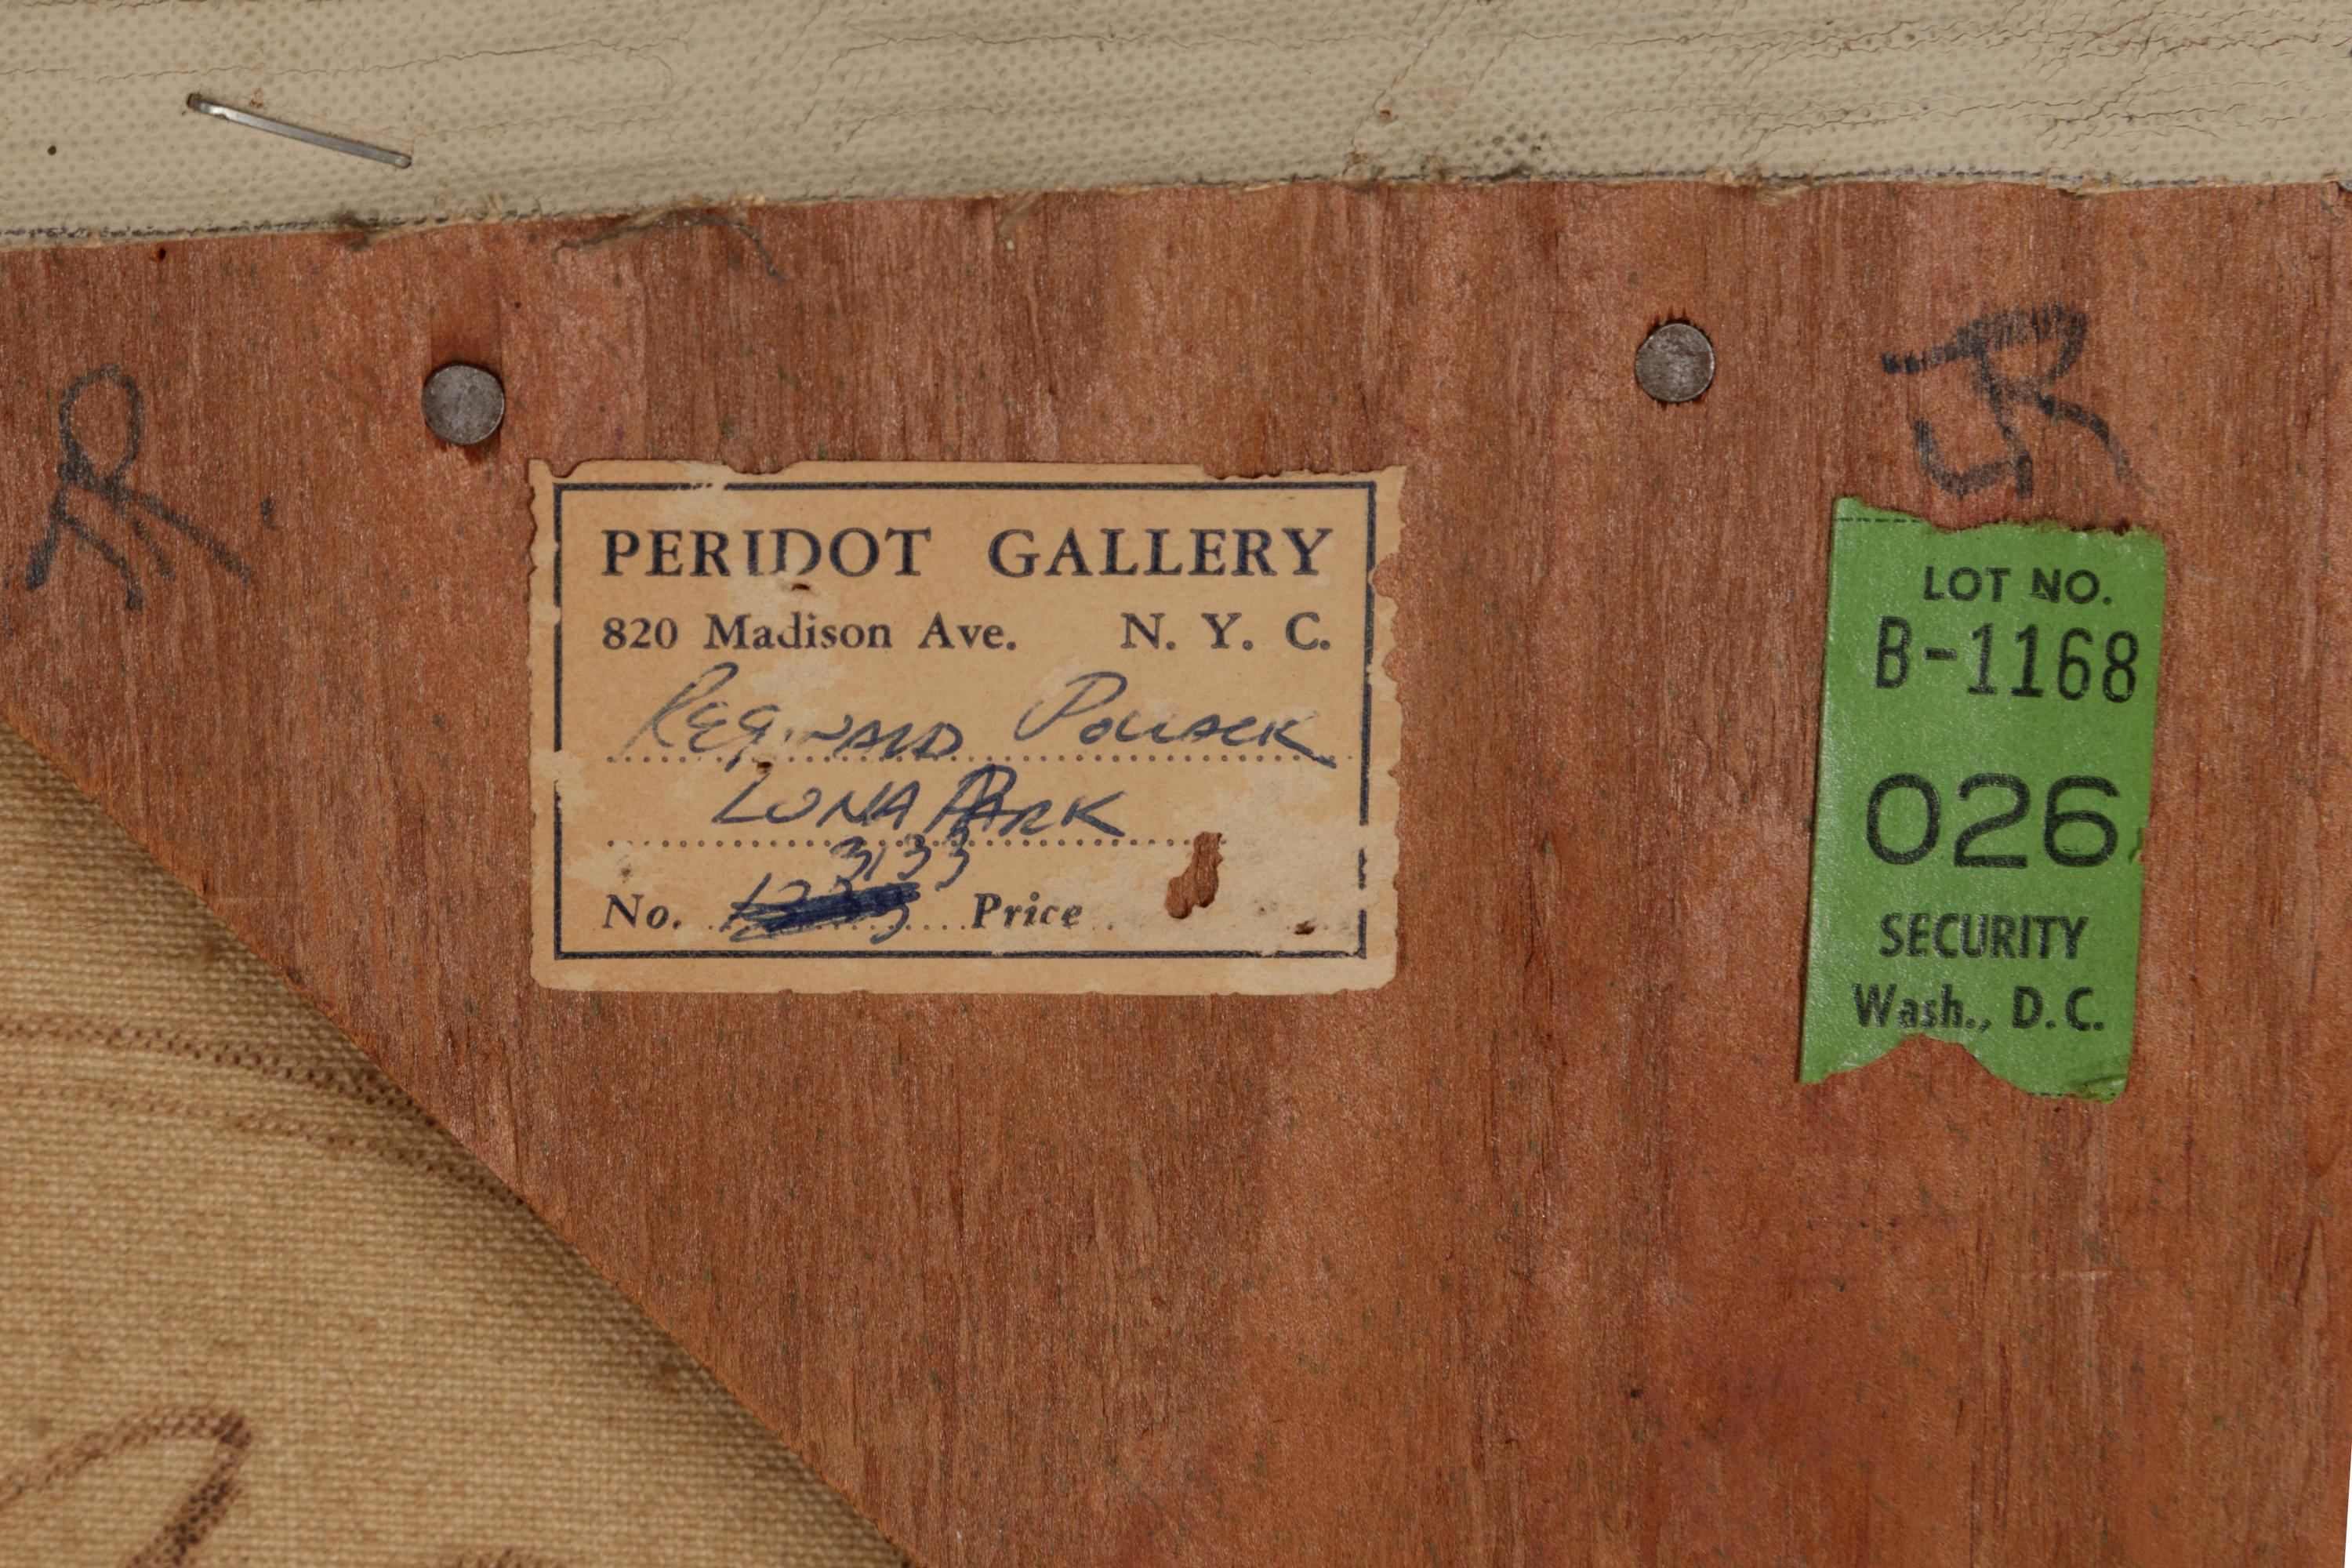 PERIDOT GALLERY
820 Madison Ave. N. Y. C.
REGINALD POLLACK
LUNA PARK
3133
No. Price
LOT NO.
B-1168
026
SECURITY
Wash., D.C.